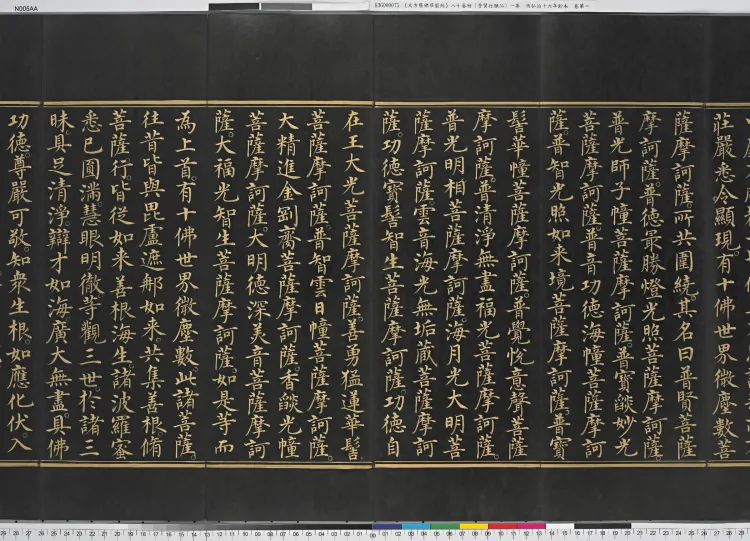 N005AA
莊嚴悉令顯現。有十佛世界微塵數菩
薩摩訶薩所共圍繞。其名曰普賢菩薩
摩訶薩。普德最勝燈光照菩薩摩訶薩。
普光師子幢菩薩摩訶薩。普寶燄妙光
菩薩摩訶薩。普音功德海幢菩薩摩訶
薩。普智光照如來境菩薩摩訶薩。普寶
髻華幢菩薩摩訶薩。普覺悅意聲菩薩
摩訶薩。普清淨無盡福光菩薩摩訶薩。
普光明相菩薩摩訶薩。海月光大明菩
薩摩訶薩。雲音海光無垢藏菩薩摩訶
薩。功德寶髻智生菩薩摩訶薩。功德自
在王大光菩薩摩訶薩。善勇猛蓮華髻
菩薩摩訶薩。普智雲日幢菩薩摩訶薩。
大精進金剛齎菩薩摩訶薩。香燄光幢
菩薩摩訶薩。大明德深美音菩薩摩訶
薩。大福光智生菩薩摩訶薩。如是等而
為上首。有十佛世界微塵數。此諸菩薩。
往昔皆與毘盧遮那如來。共集善根脩
菩薩行。皆從如來善根海生。諸波羅蜜
悉已圓滿。慧眼明徹。等觀三世。於諸三
昧。具足清淨。辯才如海。廣大無盡。具佛
功德。尊嚴可敬。知衆生根。如應化伏。入